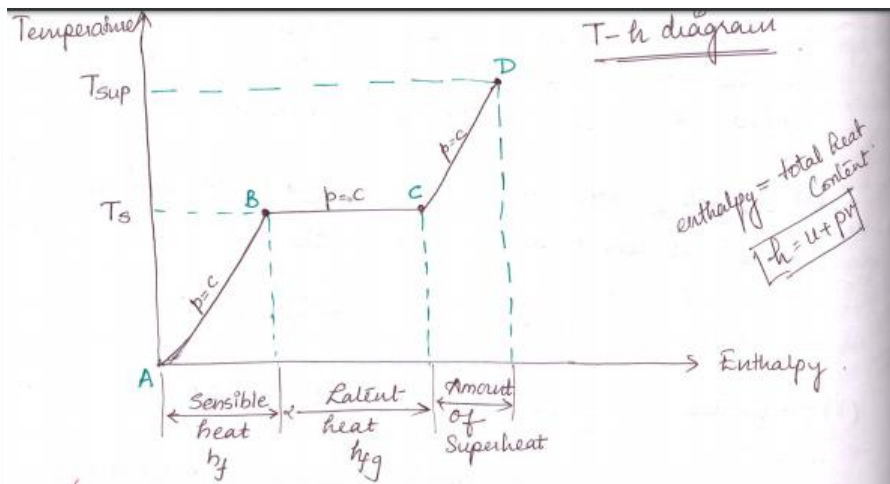 Temperature
T-h diagram
Tsup
D
p=c
enthalpy = total heat
content
h = u + pv
Ts
B
p=c
C
p=c
A
Enthalpy
Sensible
heat
hf
Latent
heat
hfg
Amount
of
Superheat